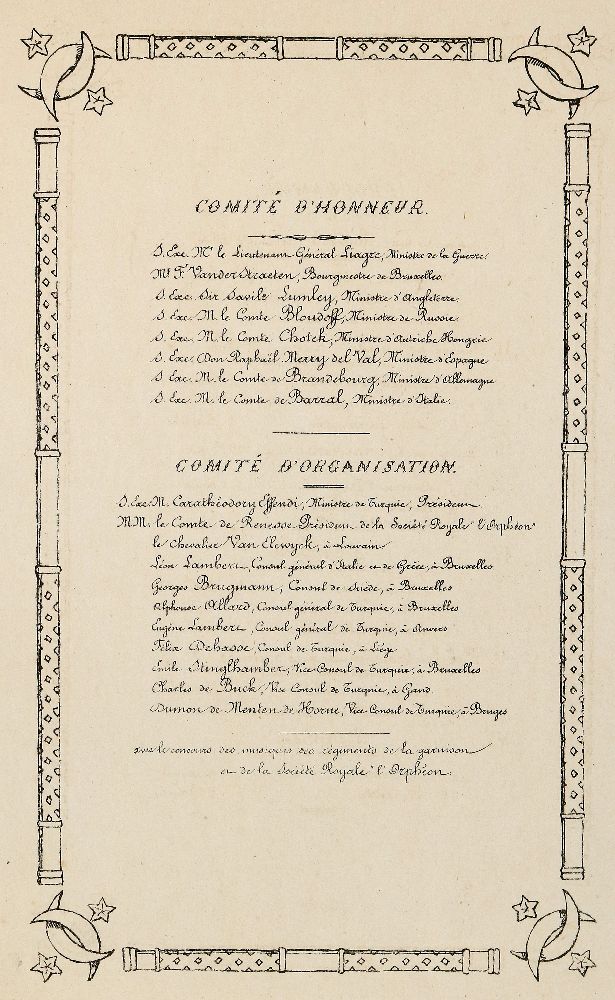 COMITÉ D'HONNEUR.
S. Exc. Mr le Lieutenant-Général Liagre, Ministre de la Guerre.
Mr F. VanderStraeten, Bourgmestre de Bruxelles.
S. Exc. Sir Savile Lumley, Ministre d'Angleterre.
S. Exc. M. le Comte Bloudoff, Ministre de Russie.
S. Exc. M. le Comte Chotek, Ministre d'Autriche Hongrie
S. Exc. Don Raphaël Merry del Val, Ministre d'Espagne
S. Exc. M. le Comte de Brandebourg, Ministre d'Allemagne
S. Exc. M. le Comte de Barral, Ministre d'Italie.
COMITÉ D'ORGANISATION.
S. Exc. M. Carathéodory Effendi, Ministre de Turquie, Président
M.M. le Comte de Renesse Président de la Société Royale "l'Orphéon"
le Chevalier Van Elewyck, à Louvain
Léon Lambert, Consul général d'Italie et de Grèce, à Bruxelles
Georges Brugmann, Consul de Suède, à Bruxelles
Alphonse Allard, Consul général de Turquie, à Bruxelles
Eugène Lambert, Consul général de Turquie, à Anvers
Félix Dehasse, Consul de Turquie, à Liège
Emile Stinglhamber, Vice Consul de Turquie, à Bruxelles
Charles de Buck, Vice Consul de Turquie, à Gand
Dumon de Menten de Horne, Vice-Consul de Turquie, à Bruges
avec le concours des musiques des régiments de la garnison
et de la Société Royale "l'Orphéon.